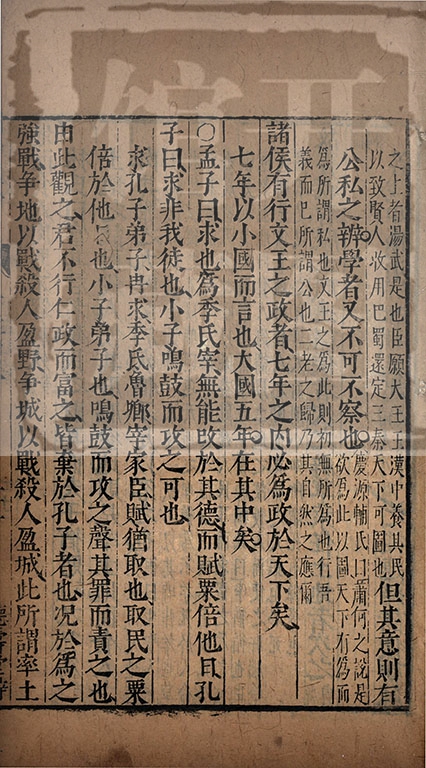 之上者湯武是也臣願大王王漢中養其民
以致賢人收用巴蜀還定三秦天下可圖也
但其意則有
公私之辨學者又不可不察也
慶源輔氏曰蕭何之說是
欲為此以圖天下有為而
為所謂私也文王之為此則初無所為也行吾
義而已所謂公也二老之歸乃其自然之應爾
諸侯有行文王之政者七年之內必為政於天下矣
七年以小國而言也大國五年在其中矣
○孟子曰求也為季氏宰無能改於其德而賦粟倍他日孔
子曰求非我徒也小子鳴鼓而攻之可也
求孔子弟子冉求季氏魯卿宰家臣賦猶取也取民之粟
倍於他日也小子弟子也鳴鼓而攻之聲其罪而責之也
由此觀之君不行仁政而富之皆棄於孔子者也況於為之
強戰争地以戰殺人盈野争城以戰殺人盈城此所謂率土